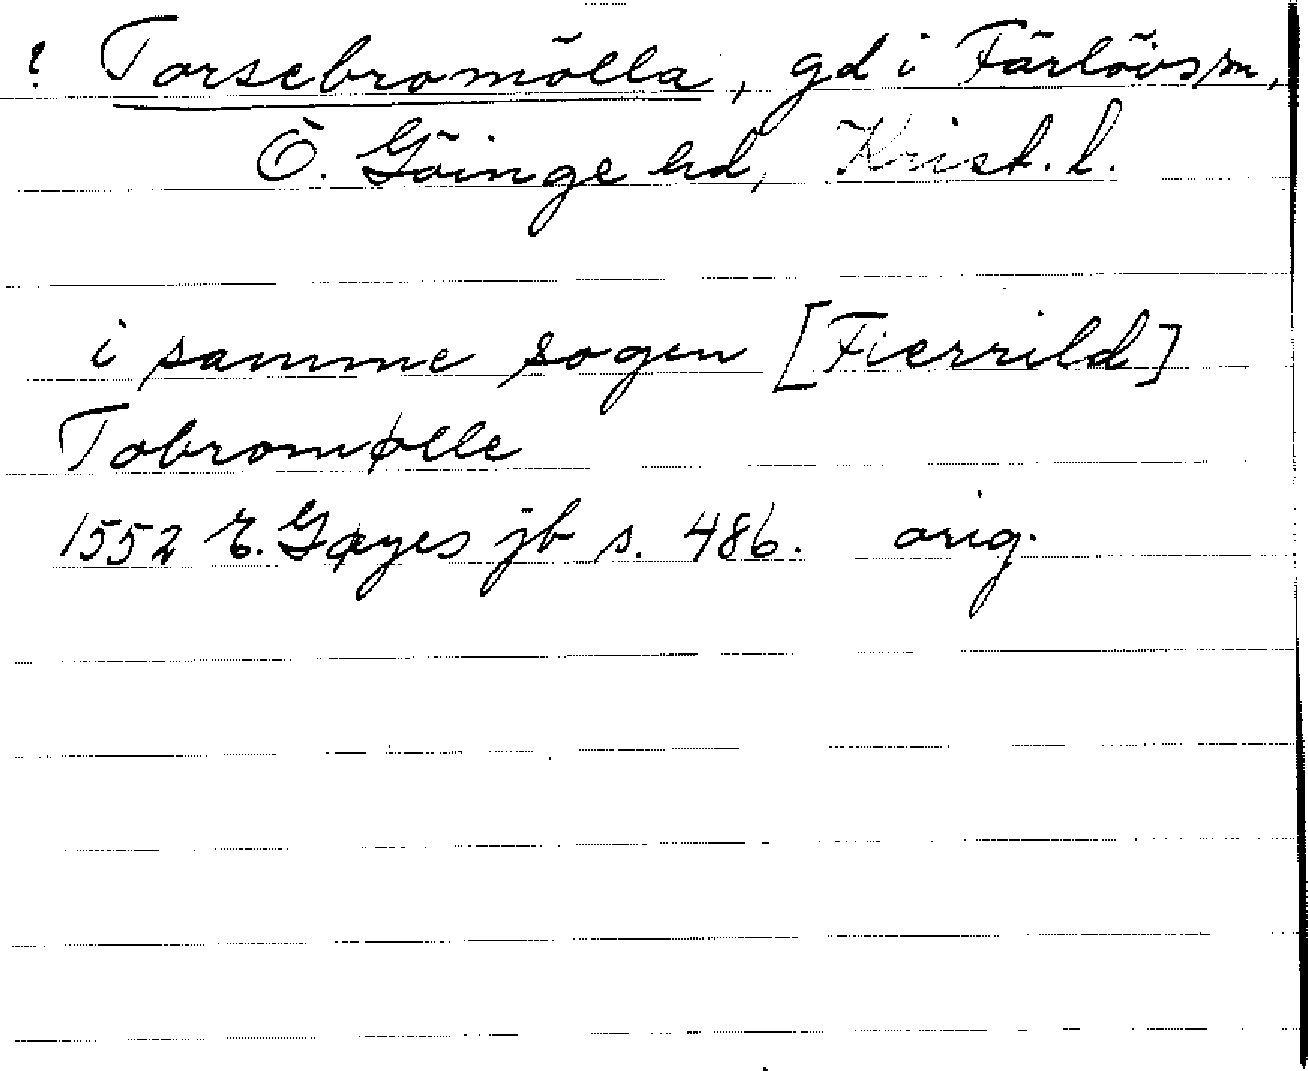 ? Torsebromölla, gd i Färlövs sn,
Ö. Göinge hd, Krist. l.
i samme sogen [Fierrild]
Tobromølle
1552 E. Gøyes jb s. 486. orig.